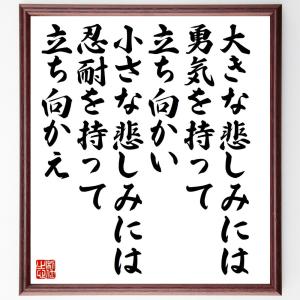 大きな悲しみには
勇気を持って
立ち向かい
小さな悲しみには
忍耐を持って
立ち向かえ